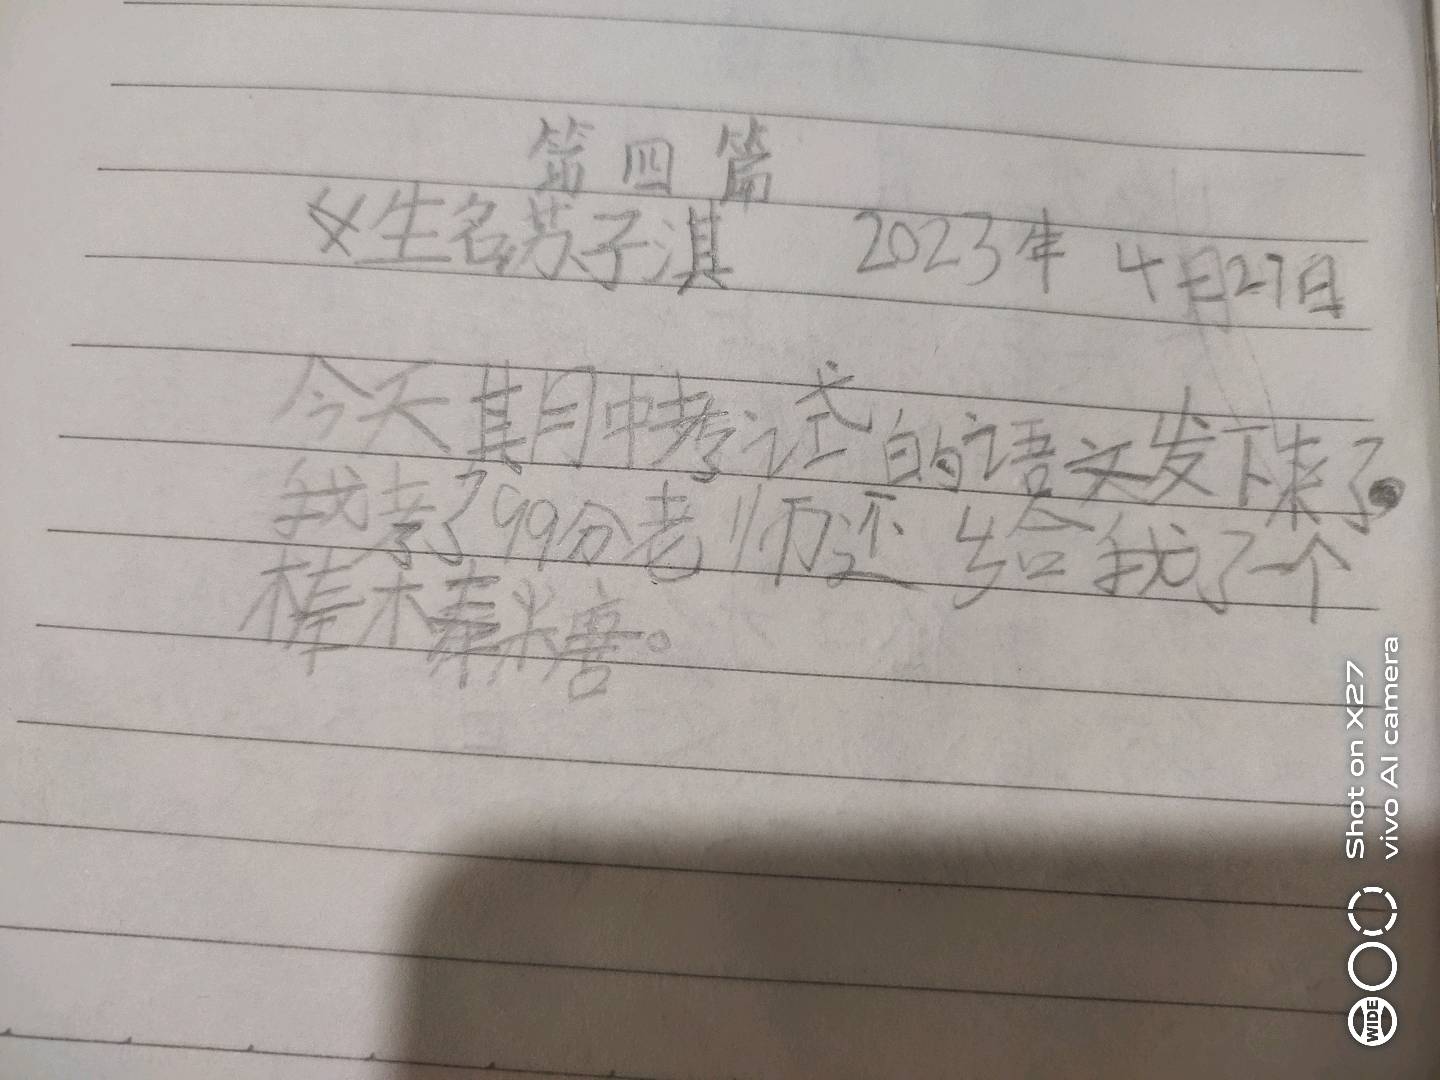 第四篇
姓名苏子淇 2023年 4月27日
今天期中考试的语文发下来了。
我考了99分老师还给我了一个
棒棒糖。
Shot on X27
vivo AI camera
WIDE